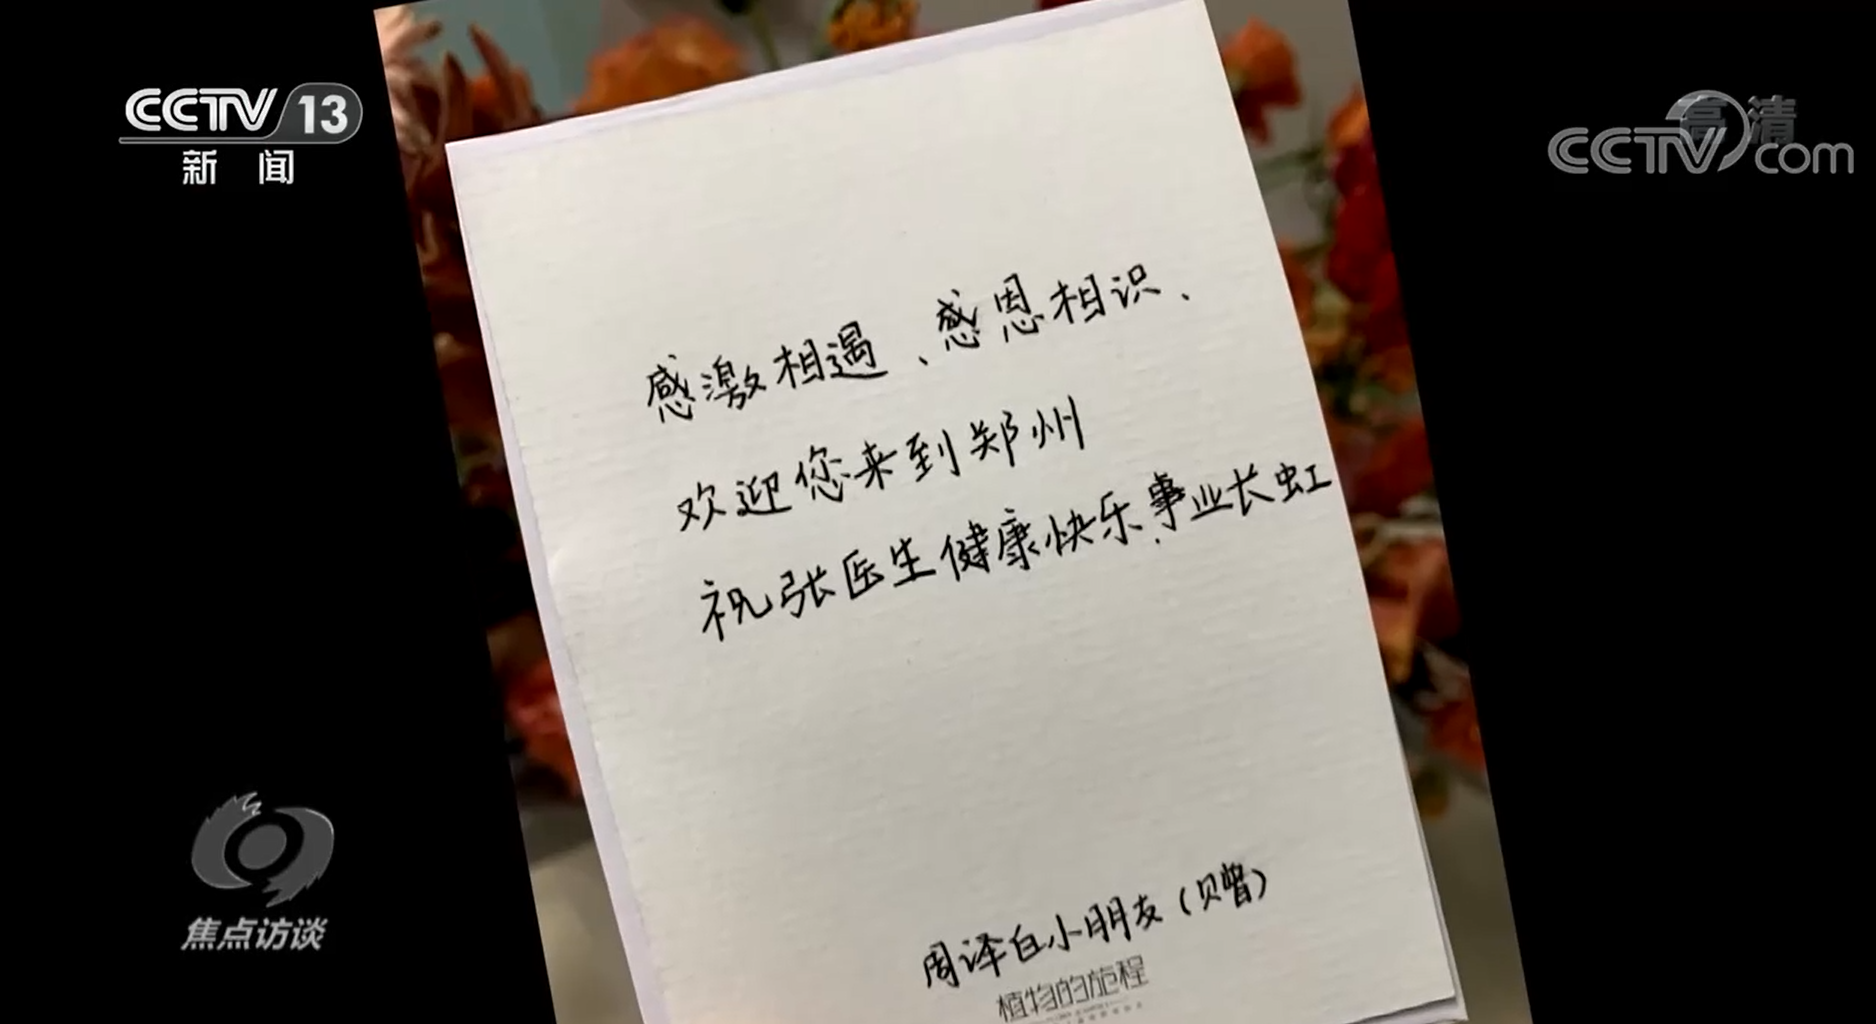 CCTV 13
新闻
高清
CCTV.com
感激相遇、感恩相识、
欢迎您来到郑州
祝张医生健康快乐、事业长虹
周泽白小朋友(赠)
植物的旅程
焦点访谈